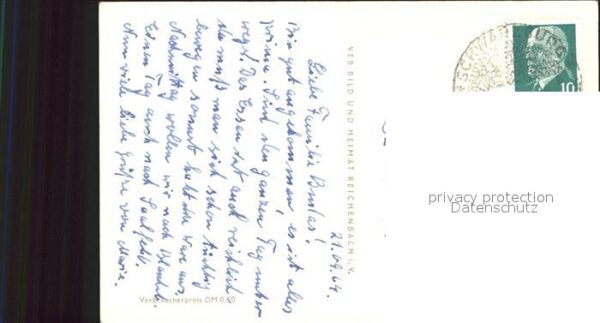 21.09.64.
Liebe Familie
Bin gut angekommen, es ist alles
prima. Sind den ganzen Tag unter-
wegs. Das Essen ist auch reichlich
da muß man sich schon tüchtig
bewegen sonst
Nachmittag wollen wir nach
Einen Tag auch nach Saalfeld.
Nun viele liebe Grüße von Marie.
VEB BILD UND HEIMAT REICHENBACH i. V.
Verbraucherpreis DM 0,20
SCHWARZBURG
10
privacy protection
Datenschutz